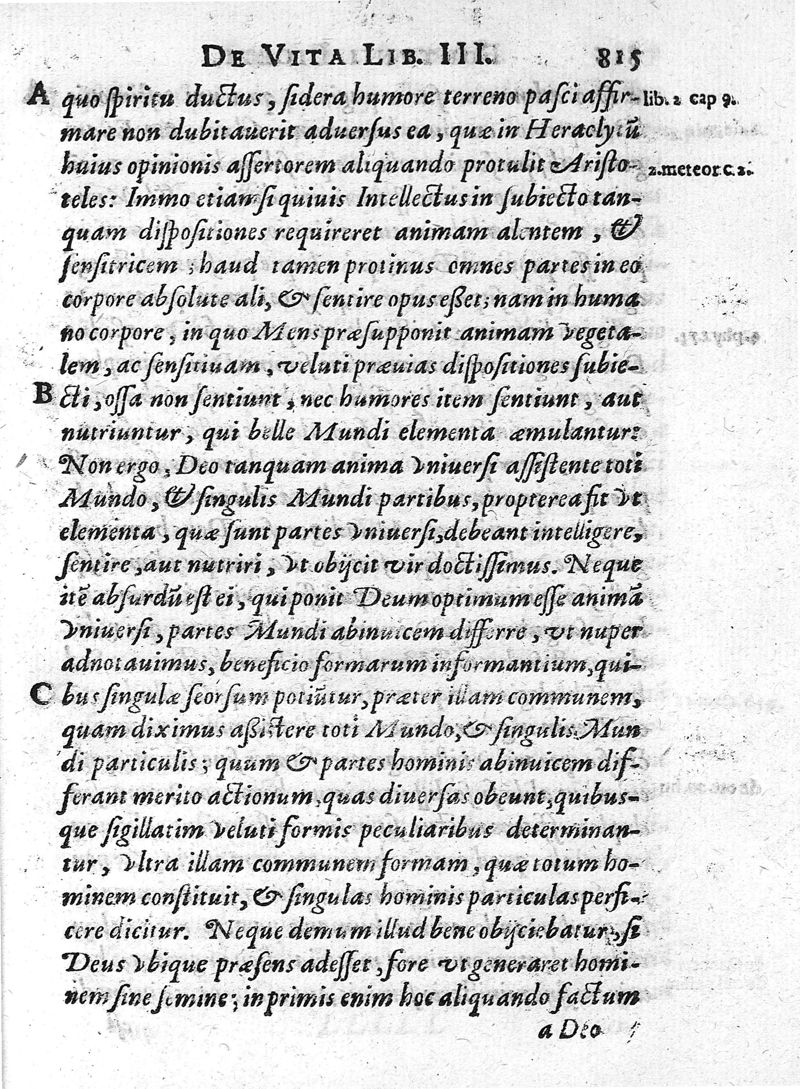 DE VITA LIB. III. 815
A quo spiritu ductus, sidera humore terreno pasci affir- lib. 2 cap 9.
mare non dubitauerit aduersus ea, quæ in Heraclytū
huius opinionis assertorem aliquando protulit Aristo- 2. meteor. c. 2.
teles: Immo etiamsi quiuis Intellectus in subiecto tan-
quam dispositiones requireret animam alentem, &
sensitricem; haud tamen protinus omnes partes in eo
corpore absolute ali, & sentire opus esset; nam in huma
no corpore, in quo Mens præsupponit animam vegeta-
lem, ac sensitiuam, veluti præuias dispositiones subie-
B cti, ossa non sentiunt, nec humores item sentiunt, aut
nutriuntur, qui belle Mundi elementa æmulantur:
Non ergo, Deo tanquam anima vniuersi assistente toti
Mundo, & singulis Mundi partibus, propterea fit vt
elementa, quæ sunt partes vniuersi, debeant intelligere,
sentire, aut nutriri, vt obijcit vir doctissimus. Neque
itē absurdū est ei, qui ponit Deum optimum esse animā
vniuersi, partes Mundi abinuicem differre, vt nuper
adnotauimus, beneficio formarum informantium, qui-
C bus singulæ seorsum potiūtur, præter illam communem,
quam diximus assistere toti Mundo, & singulis Mun
di particulis; quum & partes hominis abinuicem dif-
ferant merito actionum, quas diuersas obeunt, quibus-
que sigillatim veluti formis peculiaribus determinan-
tur, vltra illam communem formam, quæ totum ho-
minem constituit, & singulas hominis particulas perfi-
cere dicitur. Neque demum illud bene obijciebatur, si
Deus vbique præsens adesset, fore vt generaret homi-
nem sine semine; inprimis enim hoc aliquando factum
a Deo